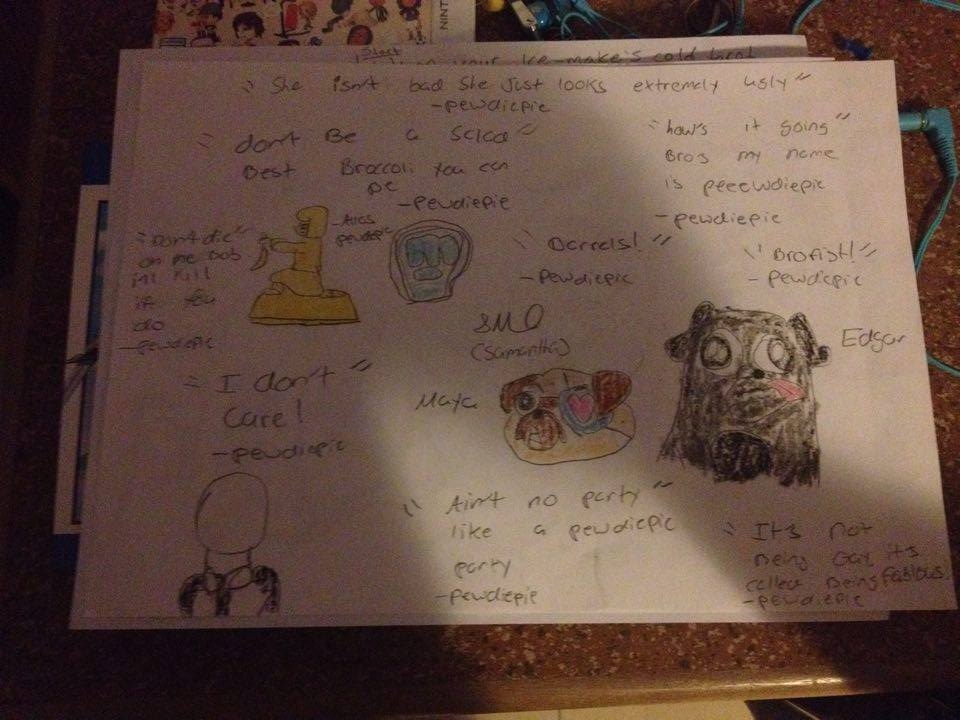 NINT
Start
your Ice-make's cold
"She isn't bad she just looks extremely ugly"
-pewdiepie
"don't Be a salad"
Best Broccoli you can
be
-pewdiepie
"how's it going"
Bros my name
is peeewdiepie
-pewdiepie
"Don't die"
on me Bob
ill kill
if you
do
-pewdiepie
pewdiepie
"Barrels!"
-Pewdiepie
"Brofist!"
-Pewdiepie
(Samantha)
Edgar
"I don't"
care!
-pewdiepie
Maya
"Ain't no party"
like a pewdiepie
party
-pewdiepie
"It's not
Being Gay its
called Being fablous
-pewdiepie